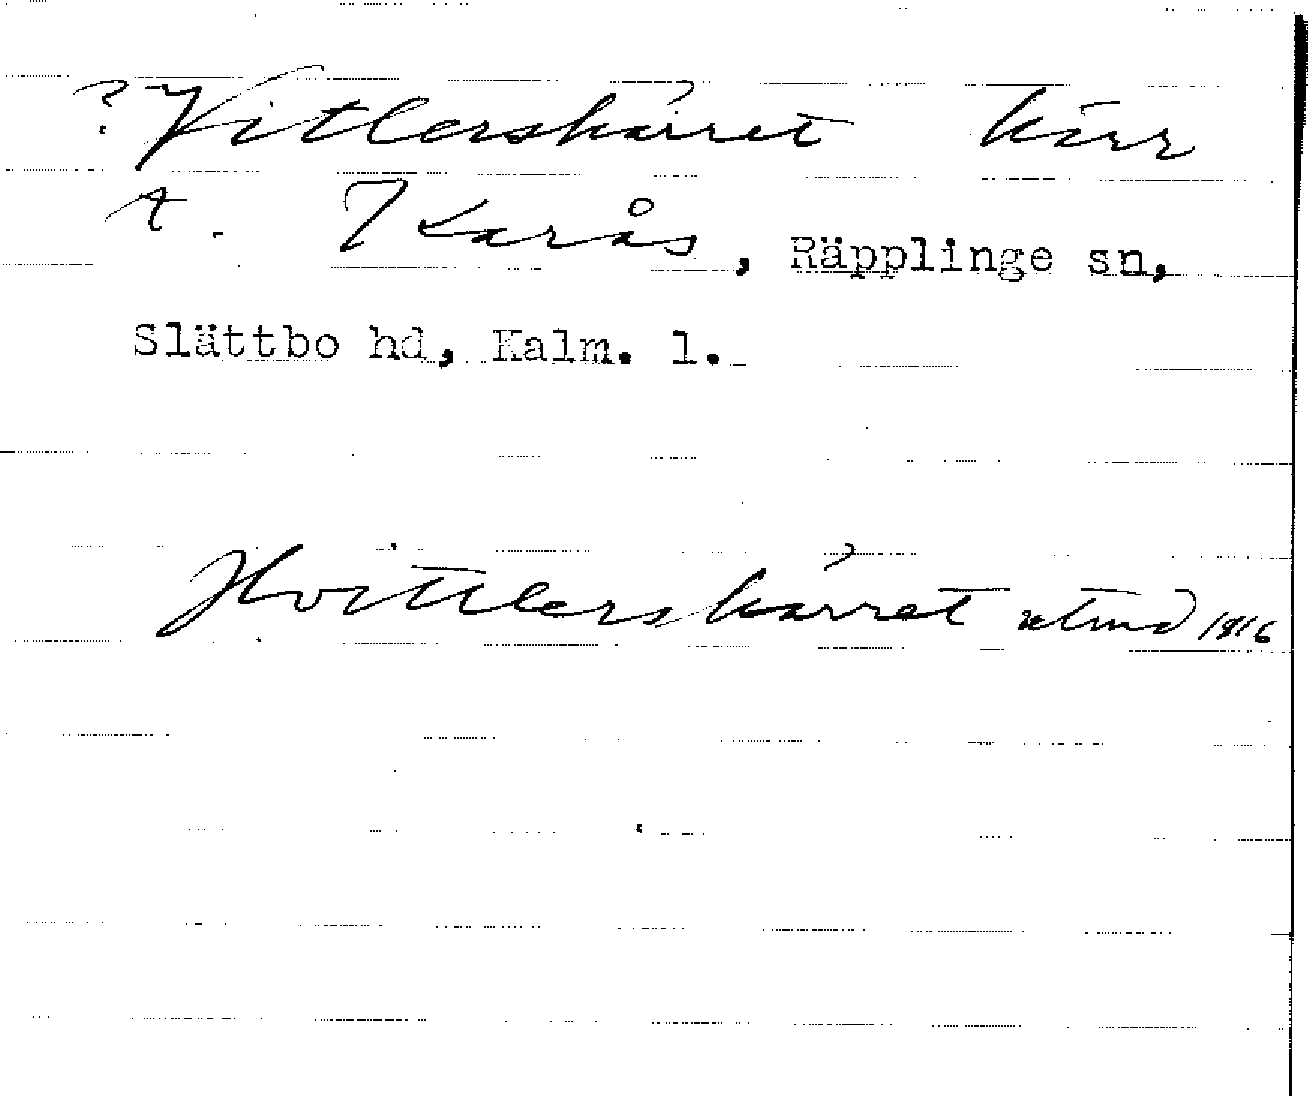 ? Vitlerskärret kärr
A. Karås, Räpplinge sn,
Slättbo hd, Kalm. l.
Hvittlerskärret utmd 1816